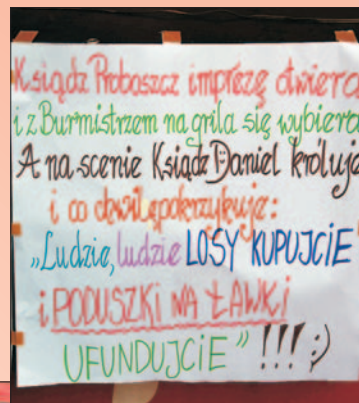 Ksiądz Proboszcz imprezę otwiera
i z Burmistrzem na grila się wybiera
A na scenie Ksiądz Daniel króluje
i co chwilę pokrzykuje:
"Ludzie, ludzie LOSY KUPUJCIE
i PODUSZKI NA ŁAWKI
UFUNDUJCIE" !!! :)